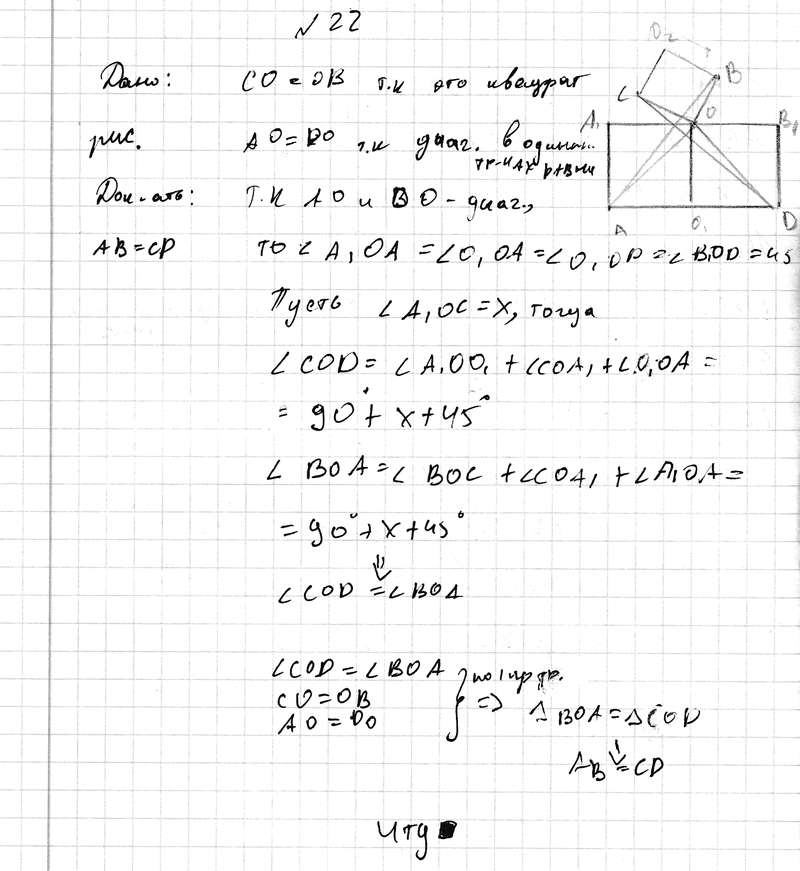 № 22
Дано: CO = OB т.к это квадрат
рис. AO = DO т.к диаг. в один...
пр-ках равны
Док-ать: Т.к AO и BO - диаг.,
AB = CD то ∠A₁OA = ∠O₁OA = ∠O₁OD = ∠B₁OD = 45
Пусть ∠A₁OC = X, тогда
∠COD = ∠A₁OO₁ + ∠COA₁ + ∠O₁OA =
= 90° + x + 45°
∠BOA = ∠BOC + ∠COA₁ + ∠A₁OA =
= 90° + x + 45°
⇓
∠COD = ∠BOA
∠COD = ∠BOA } по 1 пр тр.
CO = OB ⇒ △BOA = △COD
AO = DO
⇓
AB = CD
чтд
O₂
B
C
O
A₁
B₁
A
O₁
D